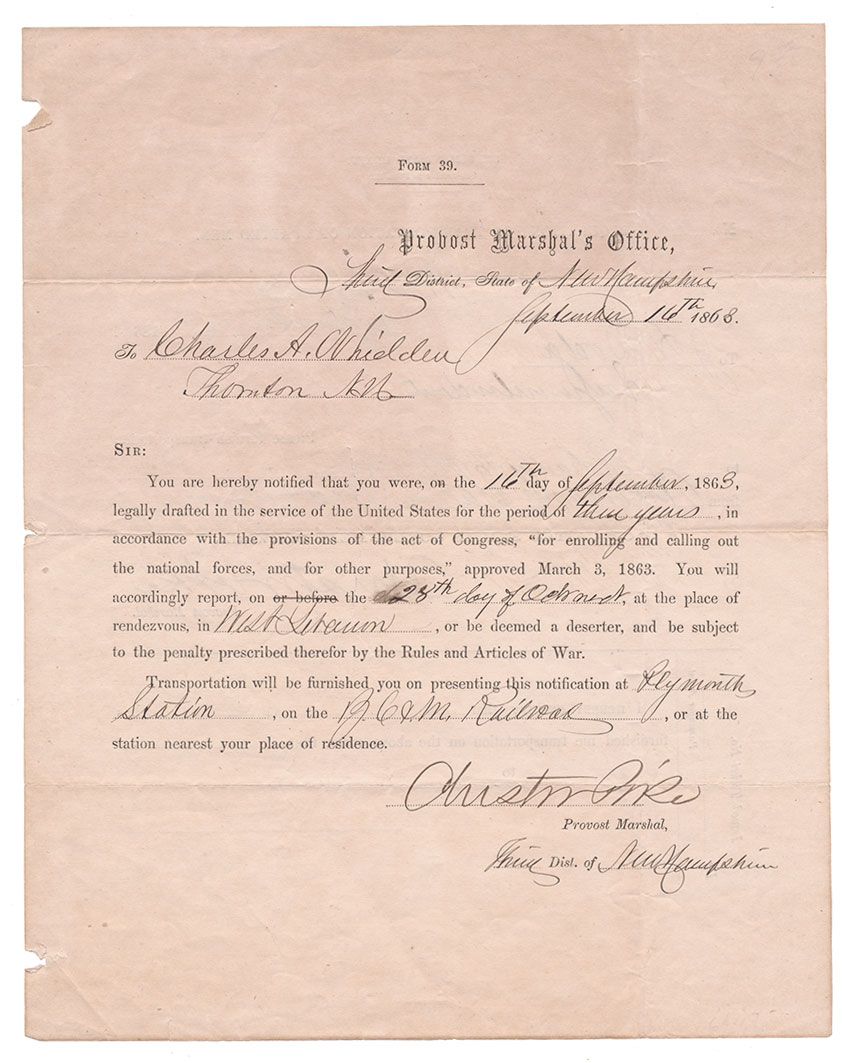 FORM 39.
Provost Marshal's Office,
Third District, State of New Hampshire
September 16th 1863.
To Charles A. Whidden
Thornton N.H.
SIR:
You are hereby notified that you were, on the 16th day of September, 1863,
legally drafted in the service of the United States for the period of three years, in
accordance with the provisions of the act of Congress, "for enrolling and calling out
the national forces, and for other purposes," approved March 3, 1863. You will
accordingly report, on or before the 28th day of, at the place of
rendezvous, in West Lebanon, or be deemed a deserter, and be subject
to the penalty prescribed therefor by the Rules and Articles of War.
Transportation will be furnished you on presenting this notification at Plymouth
Station, on the B. C & M. Railroad, or at the
station nearest your place of residence.
Chester Pike
Provost Marshal,
Third Dist. of New Hampshire